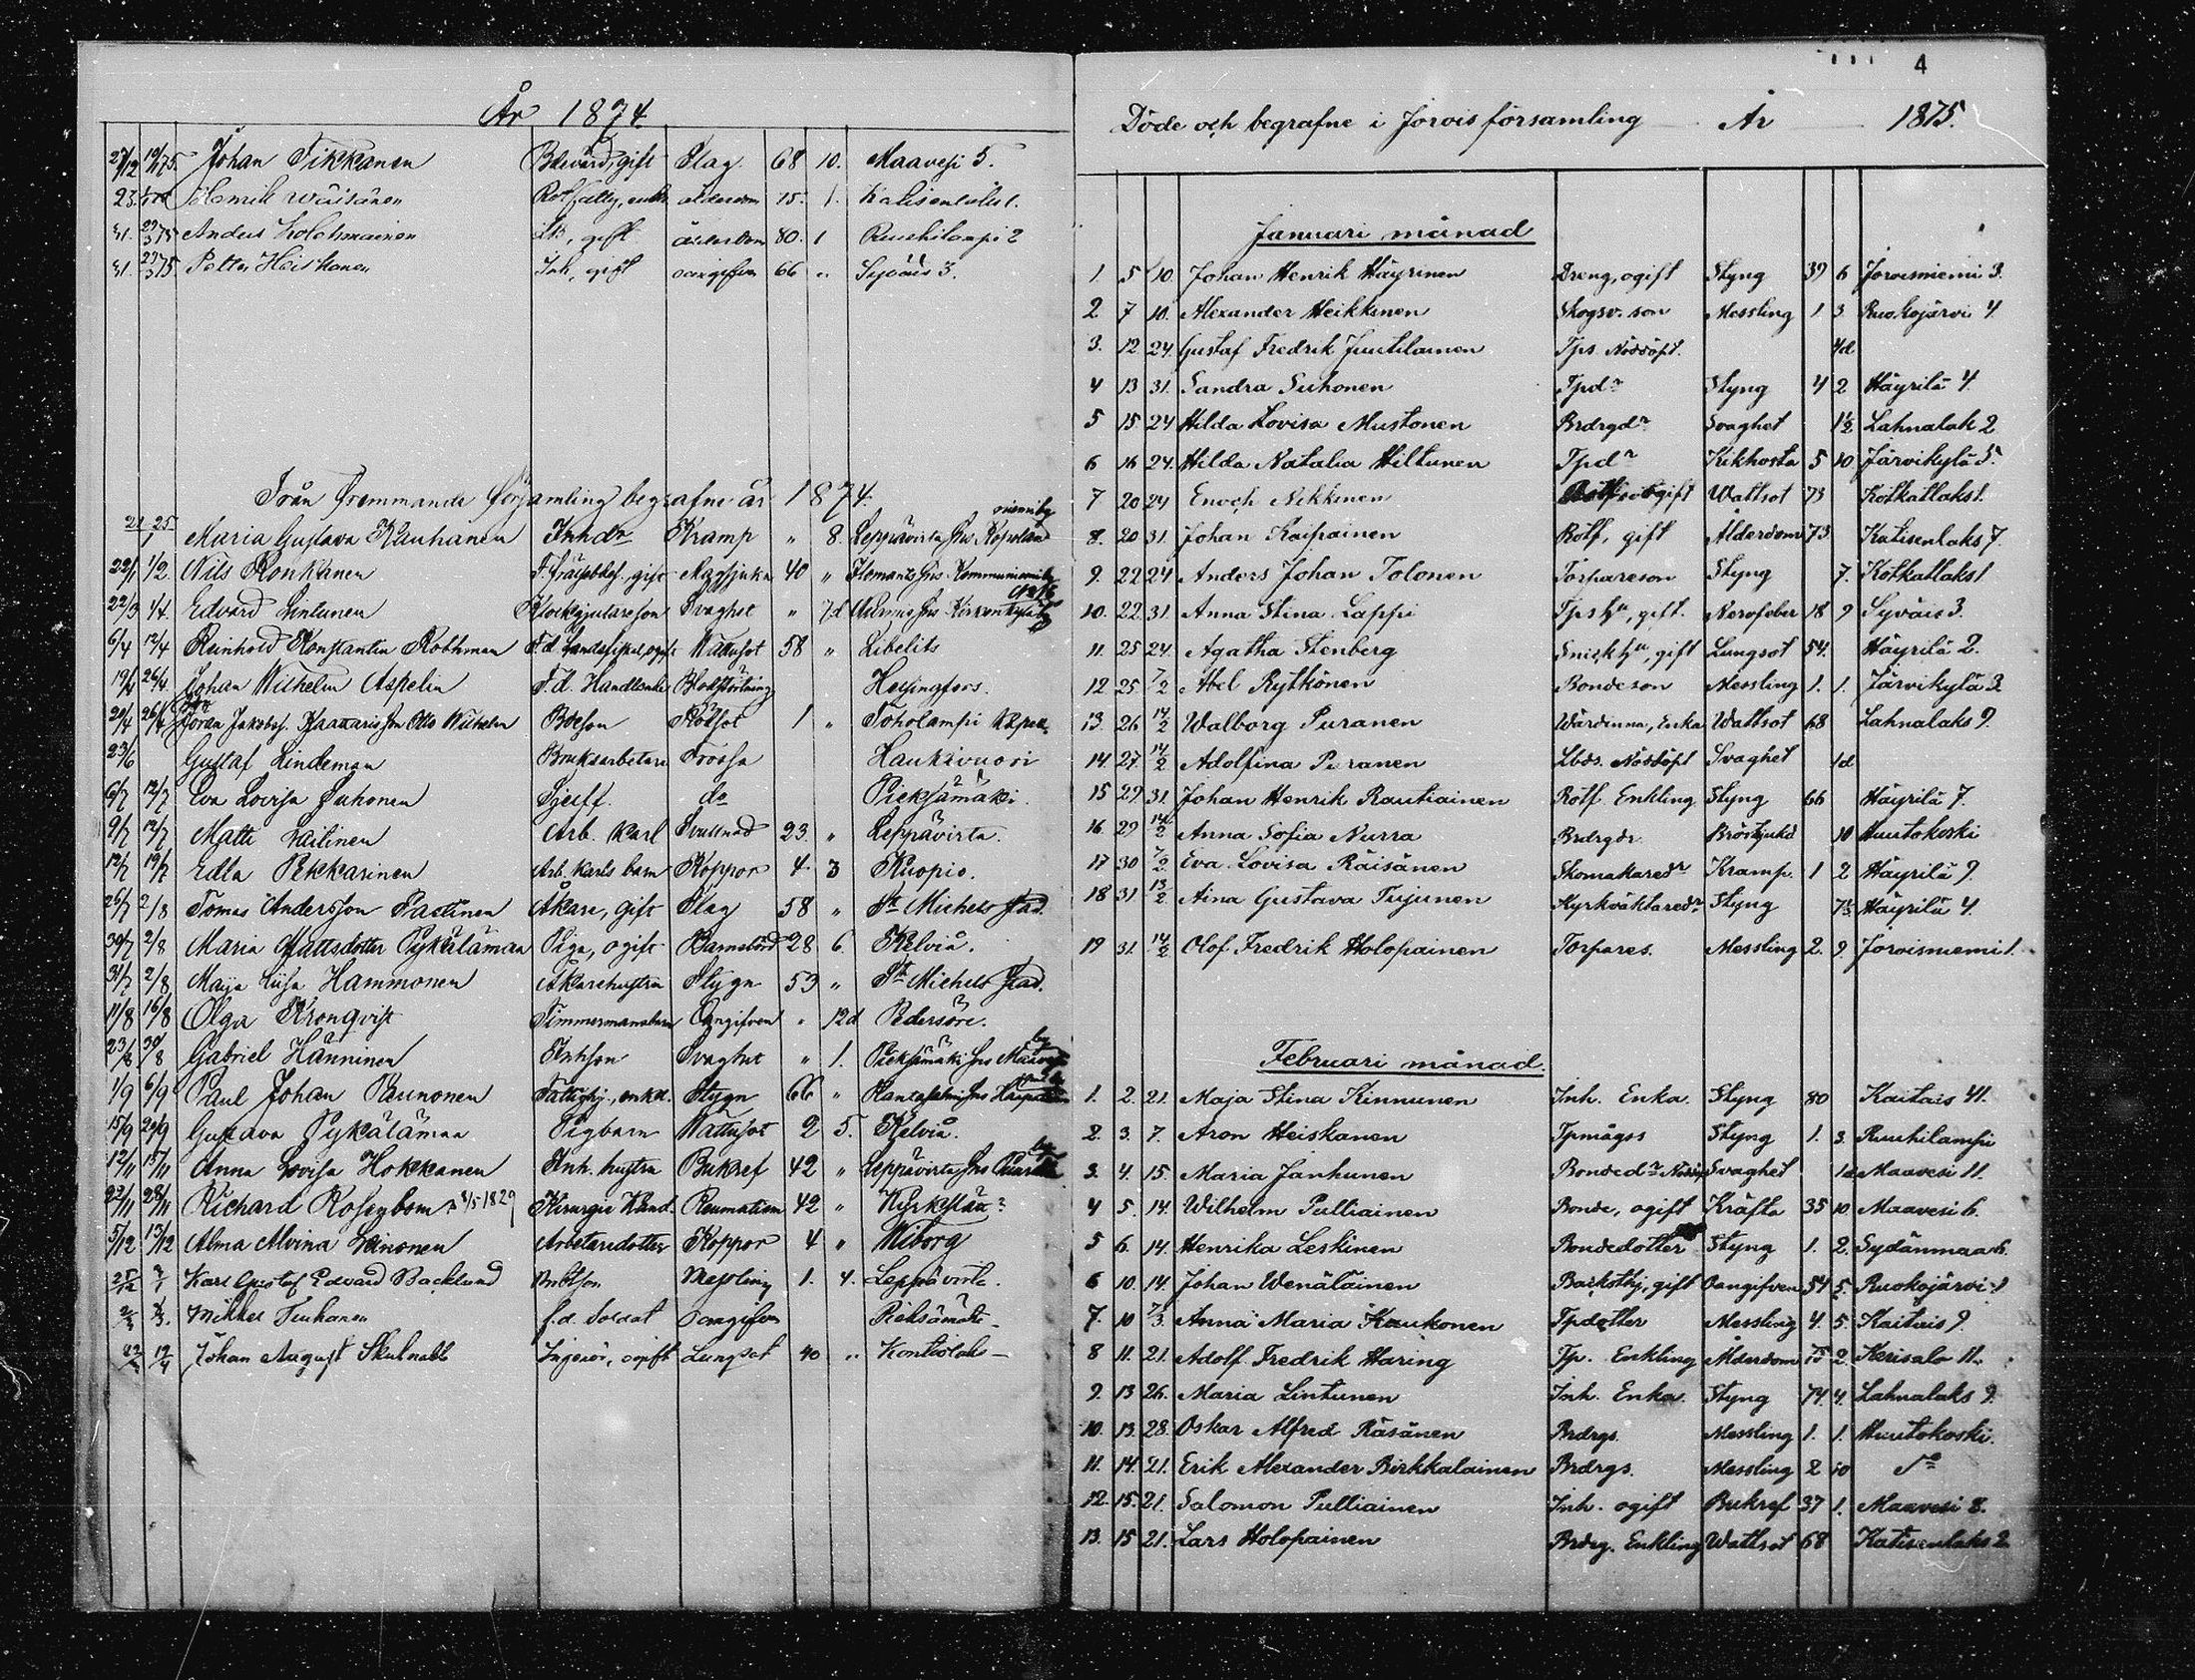 År 1874.
27/12 19/75. Johan Tikkanen gift Slag. 68 10. Maavesi 5.
23. Henrik Wäisänen ålderdom 75. 1. Katisenlaks 1.
31. Anders Kolehmainen gift ålderdom 80. 1 Ruuhilampi 2
31. Petter Heiskanen Inh, gift oangifven 66 " Syväis 3.
Från främmande församling begrafne år 1874.
21 25/1 Maria Gustava Kauhanen Inhdr Kramp " 8. Leppävirta
22/1 1/2. Nils Ronkanen gift 40 " Ilomants
22/3 1/4. Edvard Lintunen Klockgjutareson Svaghet " 7d
6/4 12/4 Reinhold Konstantin Rothman F.d. Wattusot 58 " Libelits
19/4 26/4. Johan Wilhelm Aspelin F.d. Handlande Blodstörtning Helsingfors.
20/4 26/4 Göran Jakobss. Otto Wilhelm Bdeson Rödsot 1 " Toholampi
23/6 Gustaf Lindeman Bruksarbetare Frossa Haukivuori
6/7 12/7 Eva Lovisa Suhonen do Pieksämäki.
9/7 12/7 Matti Laitinen Arb. karl Svullnad 23. " Leppävirta.
12/7 19/7 Edla Pekkarinen Arb. karls barn Koppor 4. 3 Kuopio.
26/7 2/8 Tomas Andersson Åkare, gift Slag 58 " St Michels stad.
30/7 2/8 Maria Mattsdotter Pykäläman Piga, ogift Barnsbörd 28 6. Kelviå.
31/7 2/8 Maja Lisa Hammonen Åkarehustru Stygn 53 " St Michels stad.
11/8 16/8 Olga Kronqvist Timmermansbarn Oangifven " 12d Pedersöre.
23/8 30/8 Gabriel Hänninen Inhson Svaghet " 1. Pieksämäki
1/9 6/9 Paul Johan Raunonen Fattighj., enkl. Stygn 66 " Rantasalmi
15/9 20/9 Gustava Pykäläman Pigbarn Wattusot 2 5. Kelviå.
12/11 15/11 Anna Lovisa Hokkanen Inh. hustru Bukref 42 " Leppävirta
22/11 28/11 Richard Rosenbom 8/5 1829 Kirurgie Kand. Reumatism 42 " Kyrkslätt?
5/12 13/12 Alma Alvina Leinonen Arbetaredotter Koppor 4 " Wiborg
25/12 Karl Gustaf Edvard Backlund Messling 1. 4. Leppävirta.
Mikkel Tiuhanen f.d. Soldat oangifven Pieksämäki
Johan August Skulnabb Ingeniör, ogift Lungsot 40 " Kontiolaks
4
Döde och begrafne i Jorois församling År 1875.
Januari månad
1. 5 10. Johan Henrik Häyrinen Dreng, ogift Styng 39 6 Joroisniemi 3.
2 7 10. Alexander Heikkinen Skogsv. son Messling 1 3 Ruokojärvi 4
3. 12. 24. Gustaf Fredrik Juutilainen Tps. Nöddöpt. 4d
4 13 31. Sandra Suhonen Tpdr Styng 4 2 Häyrilä 4.
5 15 24 Hilda Lovisa Mustonen Brdrgdr Svaghet 1½ Lahnalak 2
6 16 24. Hilda Natalia Hiltunen Tpdr Kikhosta 5 10 Järvikylä 5.
7 20 24 Enoch Nikkinen ogift Wattsot 73 Kotkatlaks 1.
8. 20 31. Johan Kaipainen Rotf, gift Ålderdom 73. Katisenlaks 7.
9. 22 24 Anders Johan Tolonen Torpareson Styng 7. Kotkatlaks 1
10. 22. 31. Anna Stina Lappi Tpshu, gift. Nervfeber 18 9 Syväis 3.
11. 25 24. Agatha Stenberg Snickhu, gift Lungsot 54. Häyrilä 2.
12 25 7/2 Abel Rytkönen Bondeson Messling 1. 1. Järvikylä 3
13. 26 14/2 Walborg Puranen Wärdinna, Enka Wattsot 68 Lahnalaks 9.
14 27. 14/2 Adolfina Puranen Lbds. Nöddöpt Svaghet 1d
15 29 31. Johan Henrik Rautiainen Rotf. Enkling Styng 66 Häyrilä 7.
16. 29 14/2 Anna Sofia Nurra Brdrgdr Bröstsjukd 10 Huutokoski
17 30 7/2 Eva Lovisa Räisänen Skomakaredr Kramp. 1 2 Häyrilä 9.
18 31 13/2 Aina Gustava Tujunen Kyrkväktaredr Styng 7½ Häyrilä 4.
19 31. 14/2 Olof Fredrik Holopainen Torpares. Messling 2. 9. Joroisniemi 1.
Februari månad.
1. 2. 21. Maja Stina Kinnunen Inh. Enka. Styng 80 Kaitais 41.
2. 3. 7. Aron Heiskanen Tpmågss Styng 1. 3. Ruuhilampi
3. 4. 15. Maria Janhunen Bondedr Svaghet 1d Maavesi 11.
4 5. 14. Wilhelm Pulliainen Bonde, ogift Kräfta 35 10 Maavesi 6.
5 6. 14. Henrika Leskinen Bondedotter Styng 1. 2. Sydänmaa 6.
6 10. 14. Johan Wenäläinen gift Oangifven 54 5. Ruokojärvi 1
7. 10 7/3. Anna Maria Kaukonen Tpdotter Messling 4. 5. Kaitais 9.
8 11. 21. Adolf Fredrik Haring Tp. Enkling Ålderdom 75 2. Kerisalo 11.
9. 13 26. Maria Lintunen Inh. Enka. Styng 74. 4. Lahnalaks 9.
10. 13. 28. Oskar Alfred Räsänen Brdrgs. Messling 1. 1. Huutokoski.
11. 14. 21. Erik Alexander Birkkalainen Brdrgs. Messling 2 10 do
12. 15. 21. Salomon Pulliainen Inh. ogift Bukref 37 1. Maavesi 8.
13. 15 21. Lars Holopainen Brdrg. Enkling Wattsot 68 Katisenlaks 2